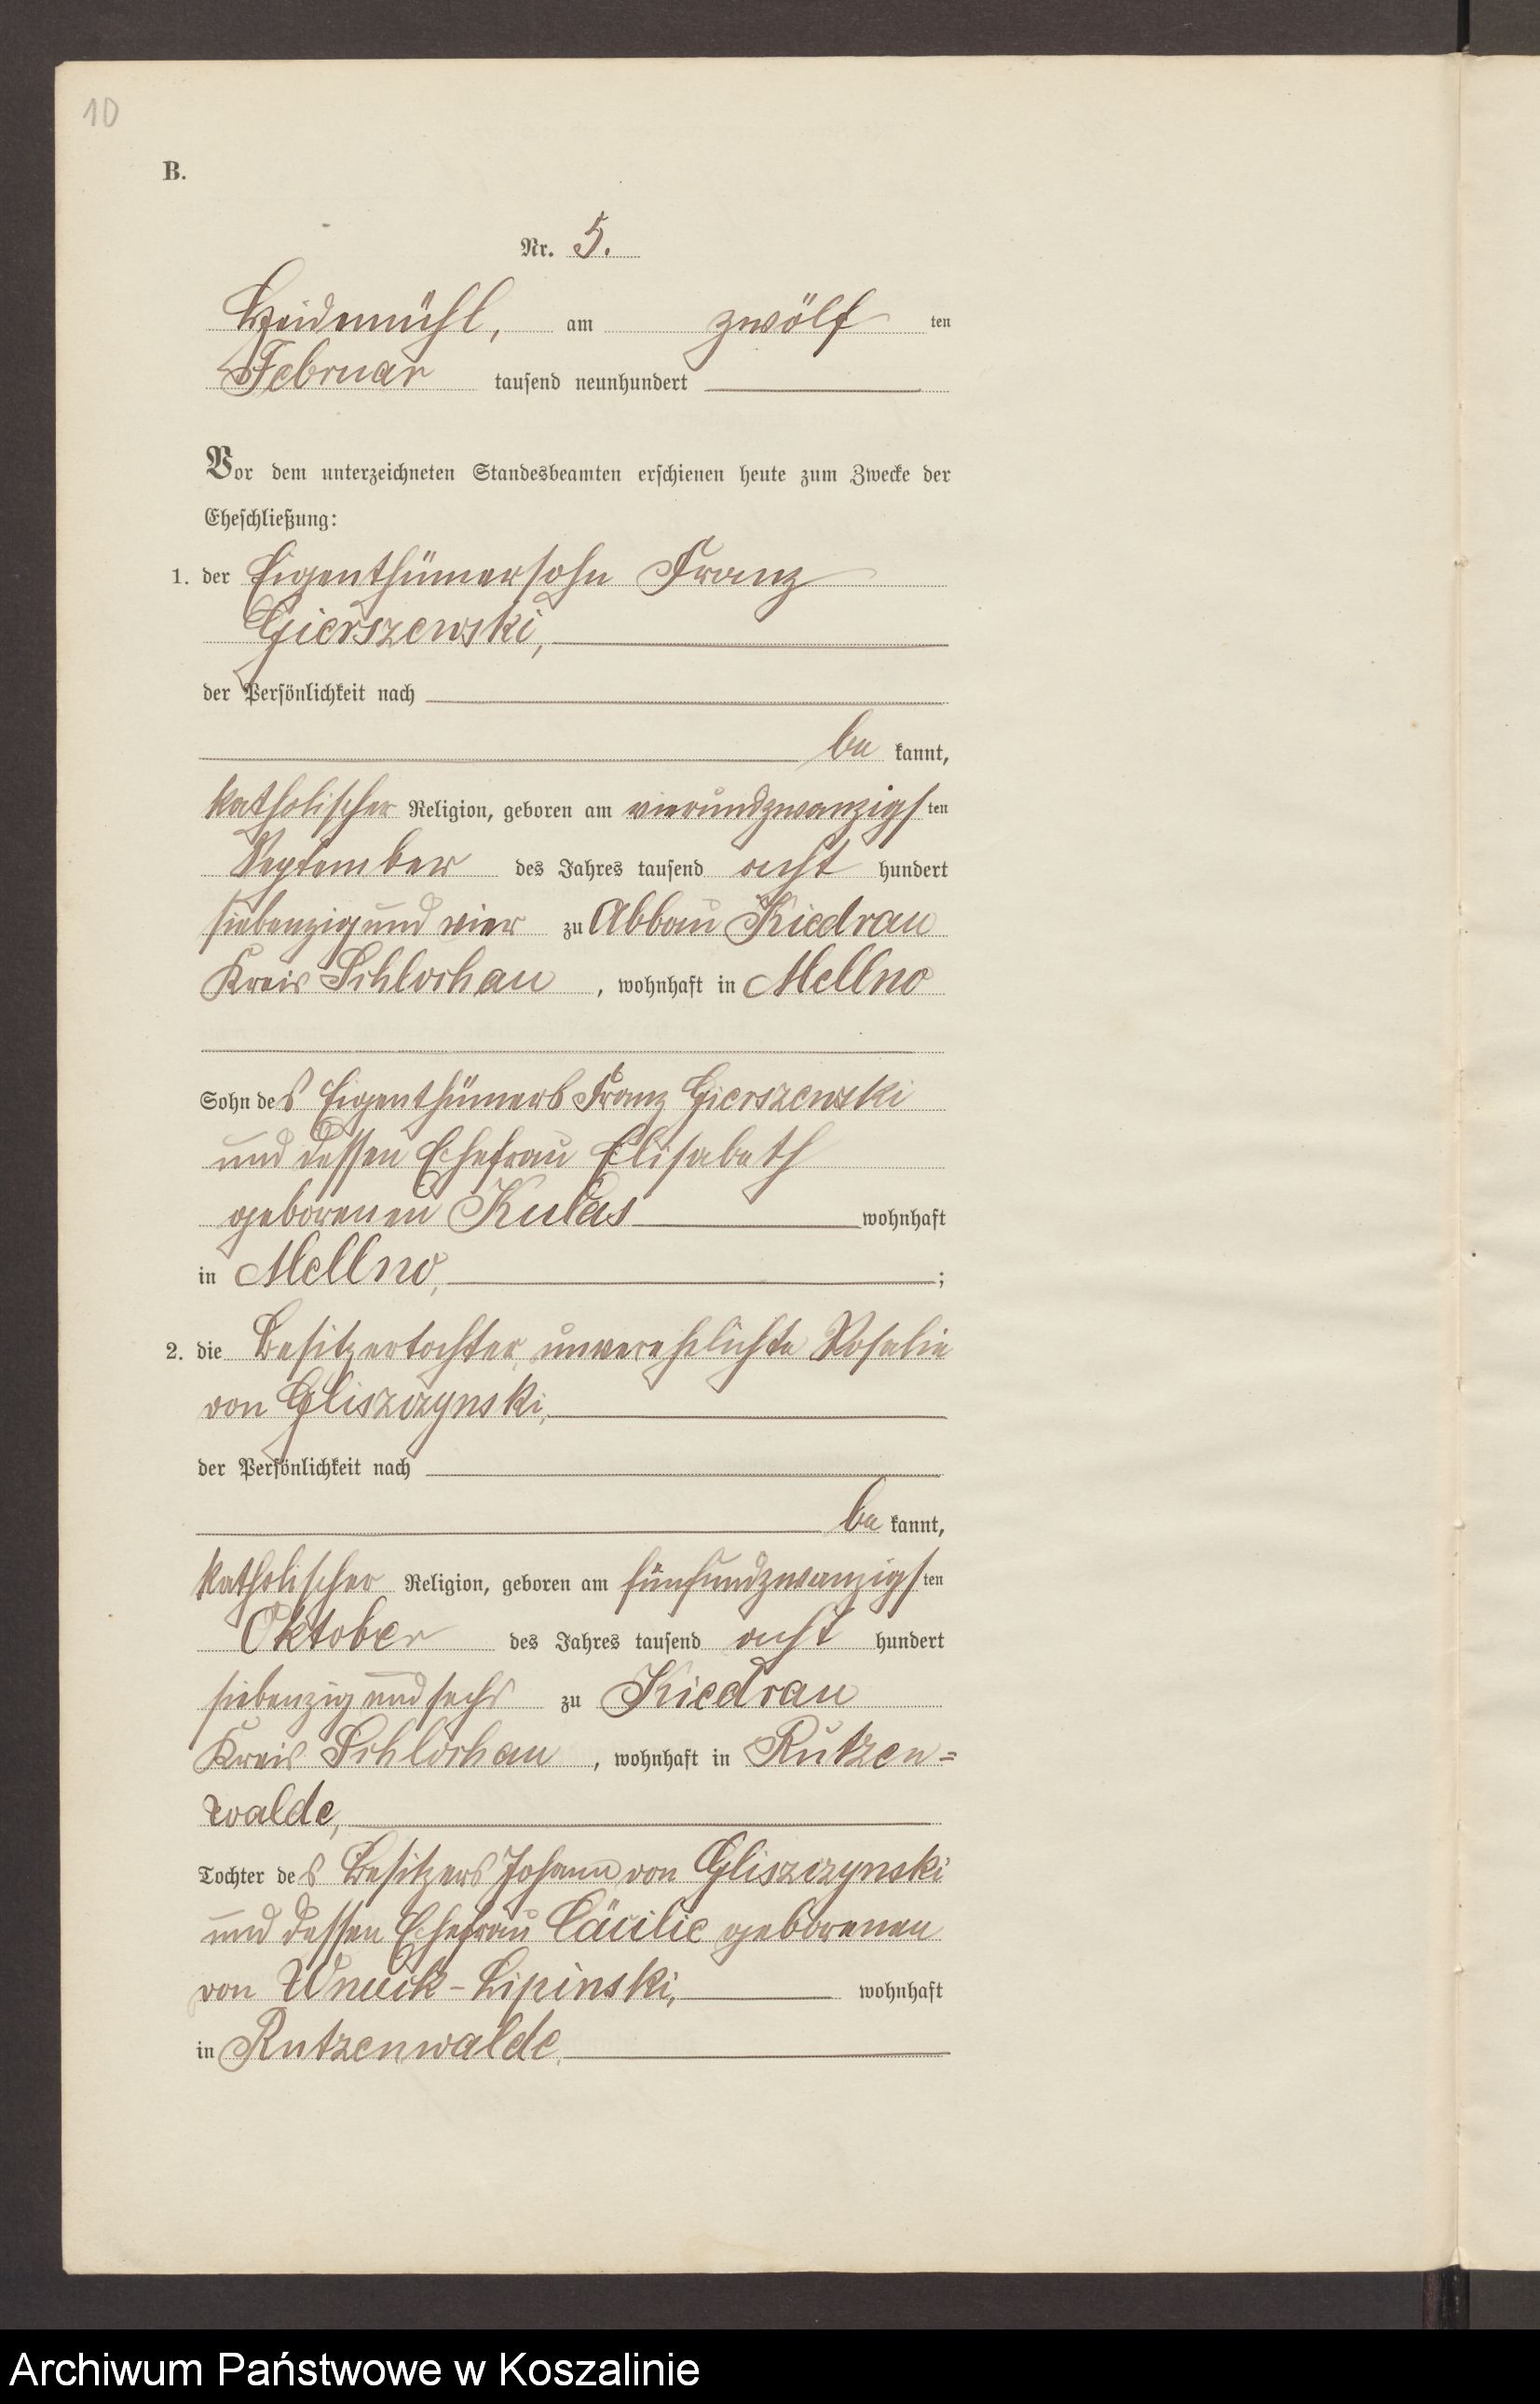 10
B.
Nr. 5.
Heidemühl, am zwölf ten
Februar tausend neunhundert
Vor dem unterzeichneten Standesbeamten erschienen heute zum Zwecke der
Eheschließung:
1. der Eigenthümersohn Franz
Gierszewski,
der Persönlichkeit nach
be kannt,
katholischer Religion, geboren am vierundzwanzigs ten
September des Jahres tausend acht hundert
siebenzig und vier zu Abbau Kiedrau
Kreis Schlochau, wohnhaft in Mellno
Sohn des Eigenthümers Franz Gierszewski
und dessen Ehefrau Elisabeth
geborenen Kulas wohnhaft
in Mellno, ;
2. die Besitzertochter, unverehelichte Rosalie
von Gliszczynski,
der Persönlichkeit nach
be kannt,
katholischer Religion, geboren am fünfundzwanzigs ten
Oktober des Jahres tausend acht hundert
siebenzig und sechs zu Kiedrau
Kreis Schlochau, wohnhaft in Rutzen=
walde,
Tochter des Besitzers Johann von Gliszczynski
und dessen Ehefrau Cäcilie geborenen
von Wnuck-Lipinski, wohnhaft
in Rutzenwalde,
Archiwum Państwowe w Koszalinie